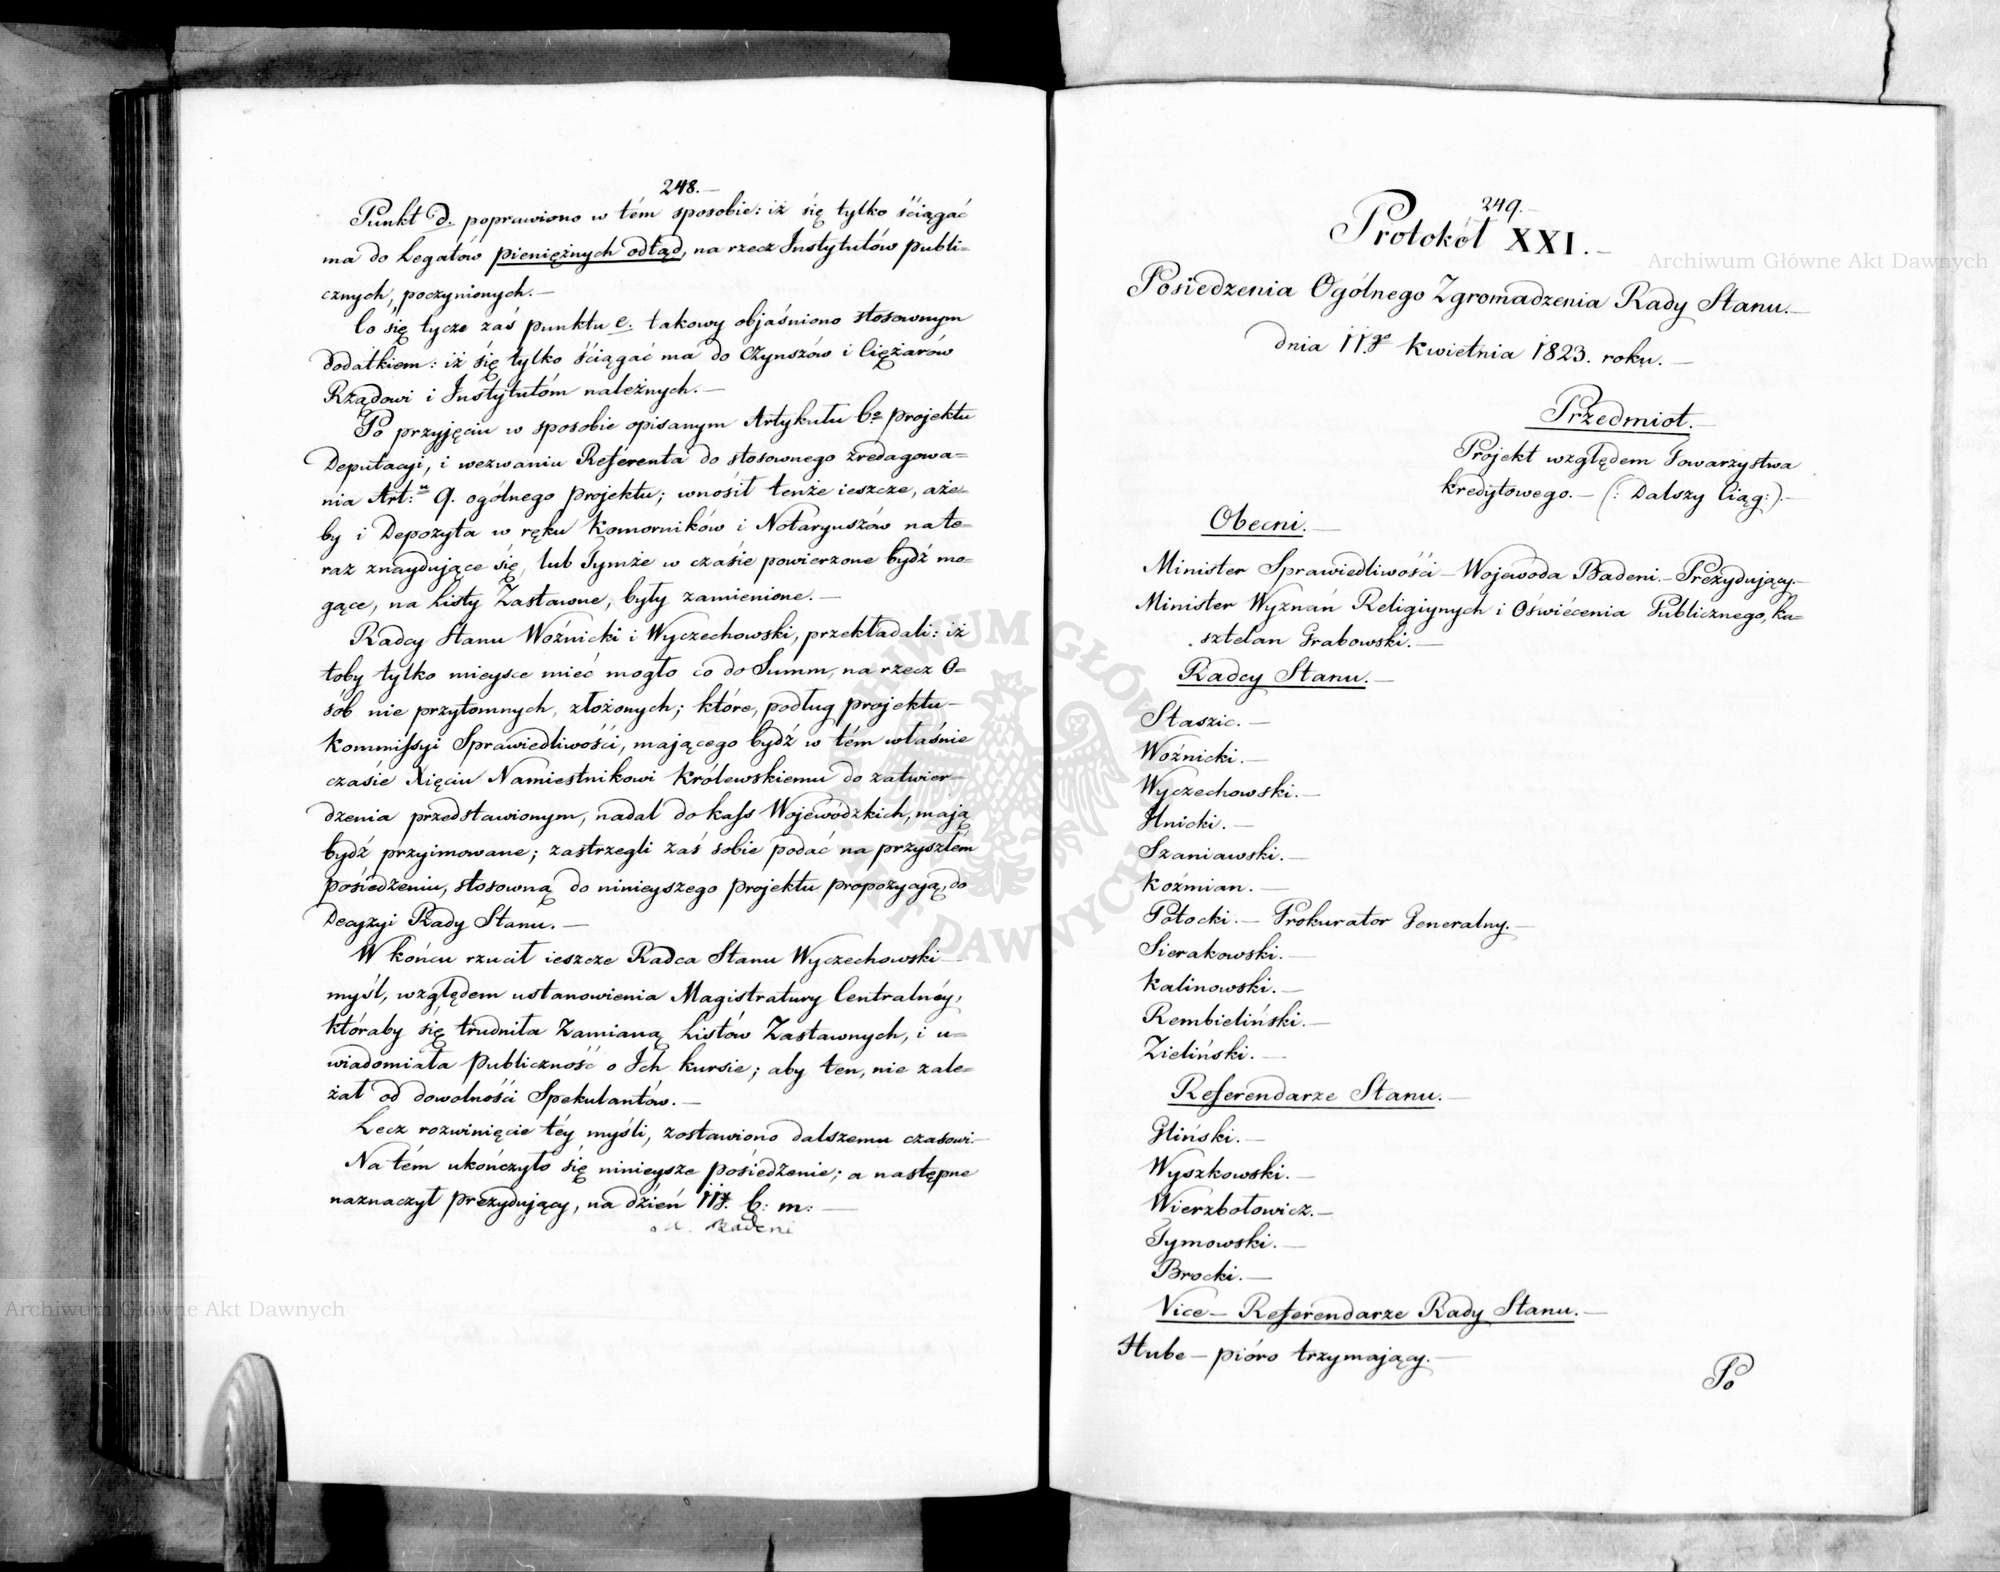 248.—
Punkt d. poprawiono w tém sposobie: iż się tylko ściągać
ma do Legatów pieniężnych odtąd, na rzecz Instytutów publi=
cznych, poczynionych.—
Co się tycze zaś punktu e. takowy objaśniono stosownym
dodatkiem: iż się tylko ściągać ma do Czynszów i Ciężarów
Rządowi i Instytutóm należnych.—
Po przyjęciu w sposobie opisanym Artykułu 6º projektu
Deputacyi, i wezwaniu Referenta do stosownego zredagowa=
nia Art: 9. ogólnego projektu; wnosił tenże ieszcze, aże=
by i Depozyta w ręku Komorników i Notaryuszów na te=
raz znaydujące się, lub Tymże w czasie powierzone bydź mo=
gące, na Listy Zastawne, były zamienione.—
Radcy Stanu Woźnicki i Wyczechowski, przekładali: iż
toby tylko mieysce mieć mogło co do Summ, na rzecz O=
sób nie przytomnych, złożonych; które, podług projektu—
Kommissyi Sprawiedliwości, mającego bydź w tém właśnie
czasie Xięciu Namiestnikowi Królewskiemu do zatwier—
dzenia przedstawionym, nadal do kass Wojewódzkich, mają
bydź przyimowane; zastrzegli zaś sobie podać na przyszłém
posiedzeniu, stosowną do ninieyszego projektu propozycją, do
Decyzyi Rady Stanu.—
W końcu rzucił ieszcze Radca Stanu Wyczechowski—
myśl, względem ustanowienia Magistratury Centralnéy,
któraby się trudniła Zamianą Listów Zastawnych, i u=
wiadomiała Publiczność o Ich kursie; aby ten, nie zale=
żał od dowolności Spekulantów.—
Lecz rozwinięcie téy myśli, zostawiono dalszemu czasowi.—
Na tém ukończyło się ninieysze posiedzenie; a następne
naznaczył prezydujący, na dzień 11g. b: m:—
Badeni
249.—
Protokół XXI.—
Posiedzenia Ogólnego Zgromadzenia Rady Stanu.—
dnia 11.go Kwietnia 1823. roku.—
Przedmiot.—
Projekt względem Towarzystwa
kredytowego.— (: Dalszy Ciąg:).—
Obecni.—
Minister Sprawiedliwości— Wojewoda Badeni.— Prezydujący.—
Minister Wyznań Religiynych i Oświécenia Publicznego, Ka=
sztelan Grabowski.—
Radcy Stanu.—
Staszic.—
Woźnicki.—
Wyczechowski.—
Hnicki.—
Szaniawski.—
Koźmian.—
Potocki.— Prokurator Generalny.—
Sierakowski.—
Kalinowski.—
Rembieliński.—
Zieliński.—
Referendarze Stanu.—
Gliński.—
Wyszkowski.—
Wierzbołowicz.—
Tymowski.—
Brocki.—
Vice— Referendarze Rady Stanu.—
Hube— pióro trzymający.—
Po
Archiwum Główne Akt Dawnych
Archiwum Główne Akt Dawnych
ARCHIWUM GŁÓWNE AKT DAWNYCH